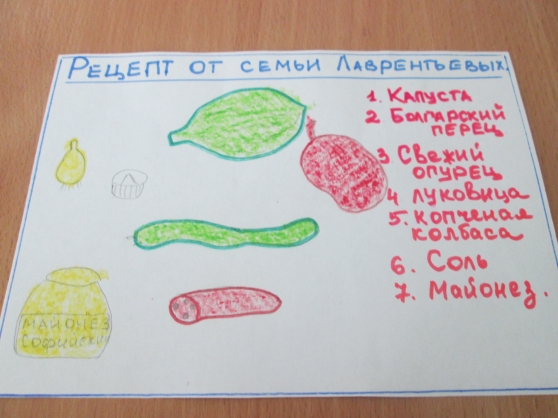 Рецепт от семьи Лаврентьевых.
1. Капуста
2 Болгарский
перец
3 Свежий
огурец
4 луковица
5. копченая
колбаса
6. Соль
7. Майонез.
МАЙОНЕЗ